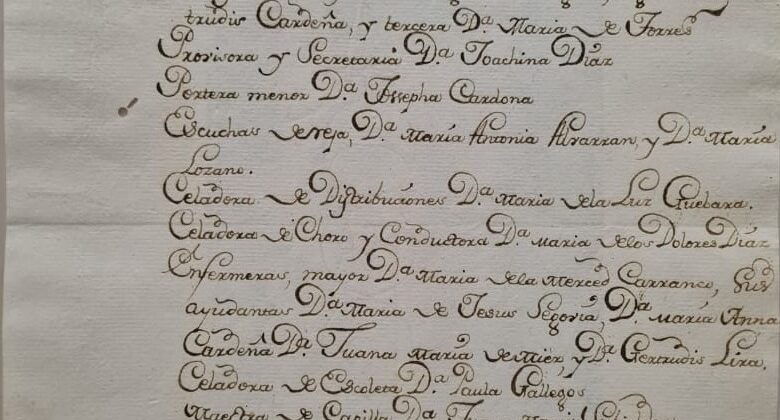 trudis Cardeña, y tercera Dª Maria de Torres
Provisora y Secretaria Dª Joachina Diaz
Portera menor Dª Jossepha Cardona
Escuchas de reja, Dª Maria Antonia Alvarran, y Dª Maria
Lozano.
Celadora de Distribuciones Dª Maria dela Luz Guebara.
Celadora de Choro y Conductora Dª Maria delos Dolores Diaz
Enfermeras, mayor Dª Maria dela Merced Carranco, sus
ayudantas Dª Maria de Jesus Segovia, Dª Maria Anna
Cardeña Dª Juana Maria de Mier, y Dª Gertrudis Lira.
Celadora de Escoleta Dª Paula Gallegos
Maestra de Capilla Dª